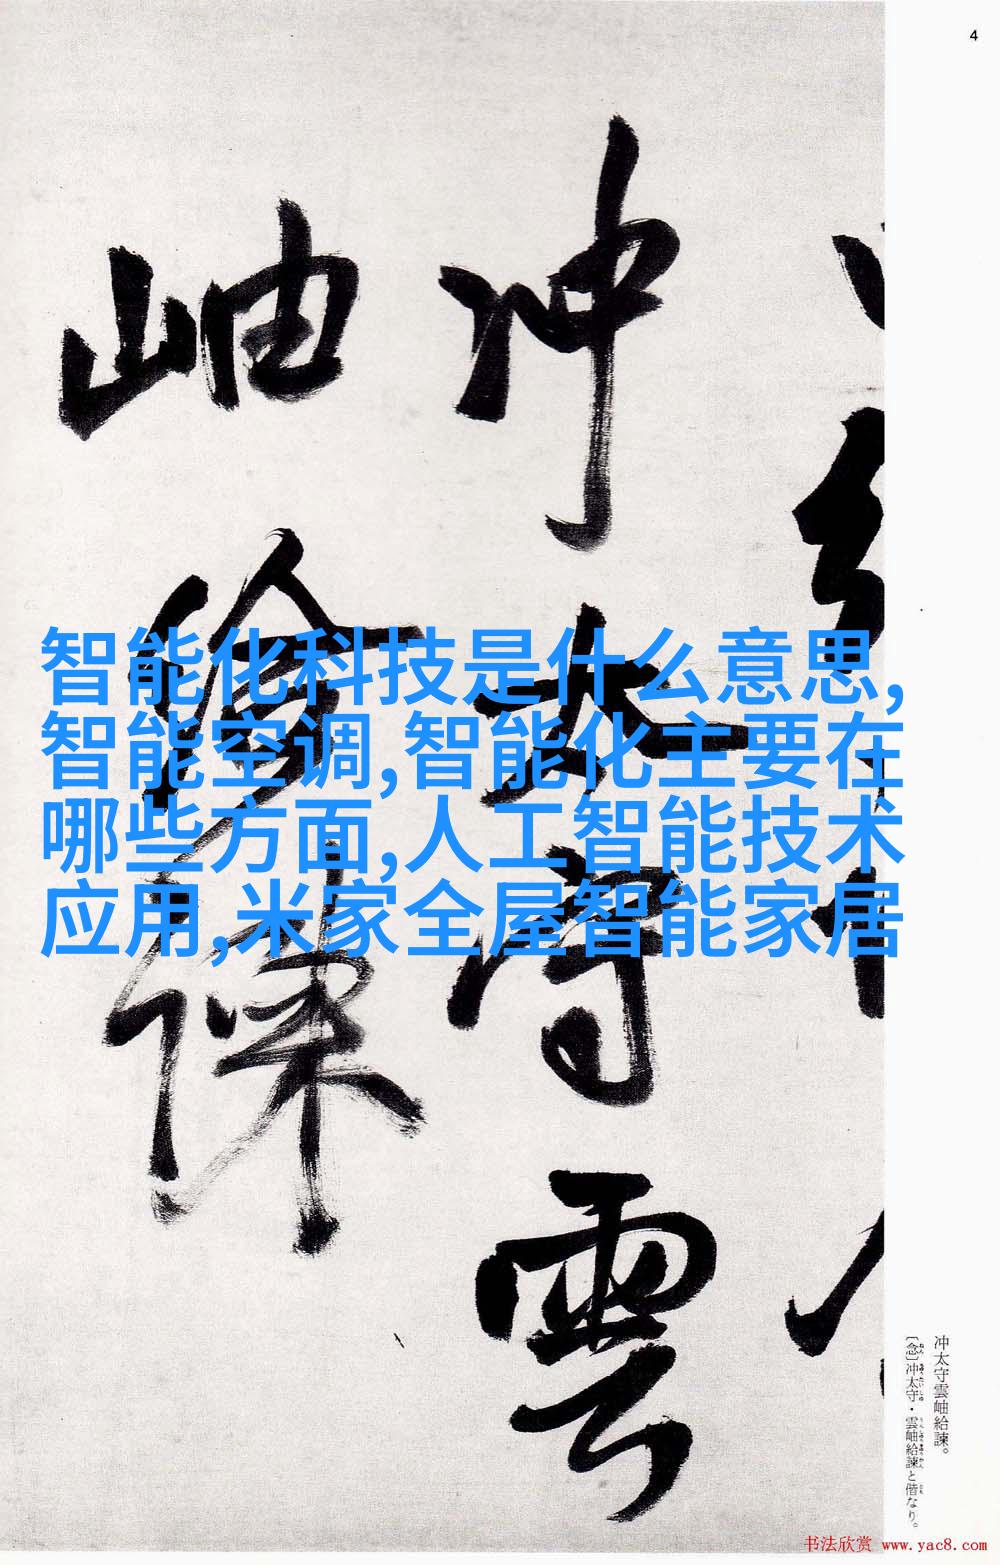 4
冲太守雲
岫給諫
智能化科技是什么意思,
智能空调,智能化主要在
哪些方面,人工智能技术
应用,米家全屋智能家居
冲太守雲岫給諫。
〔念〕冲太守・雲岫給諫と偕なり。
书法欣赏 www.yac8.com